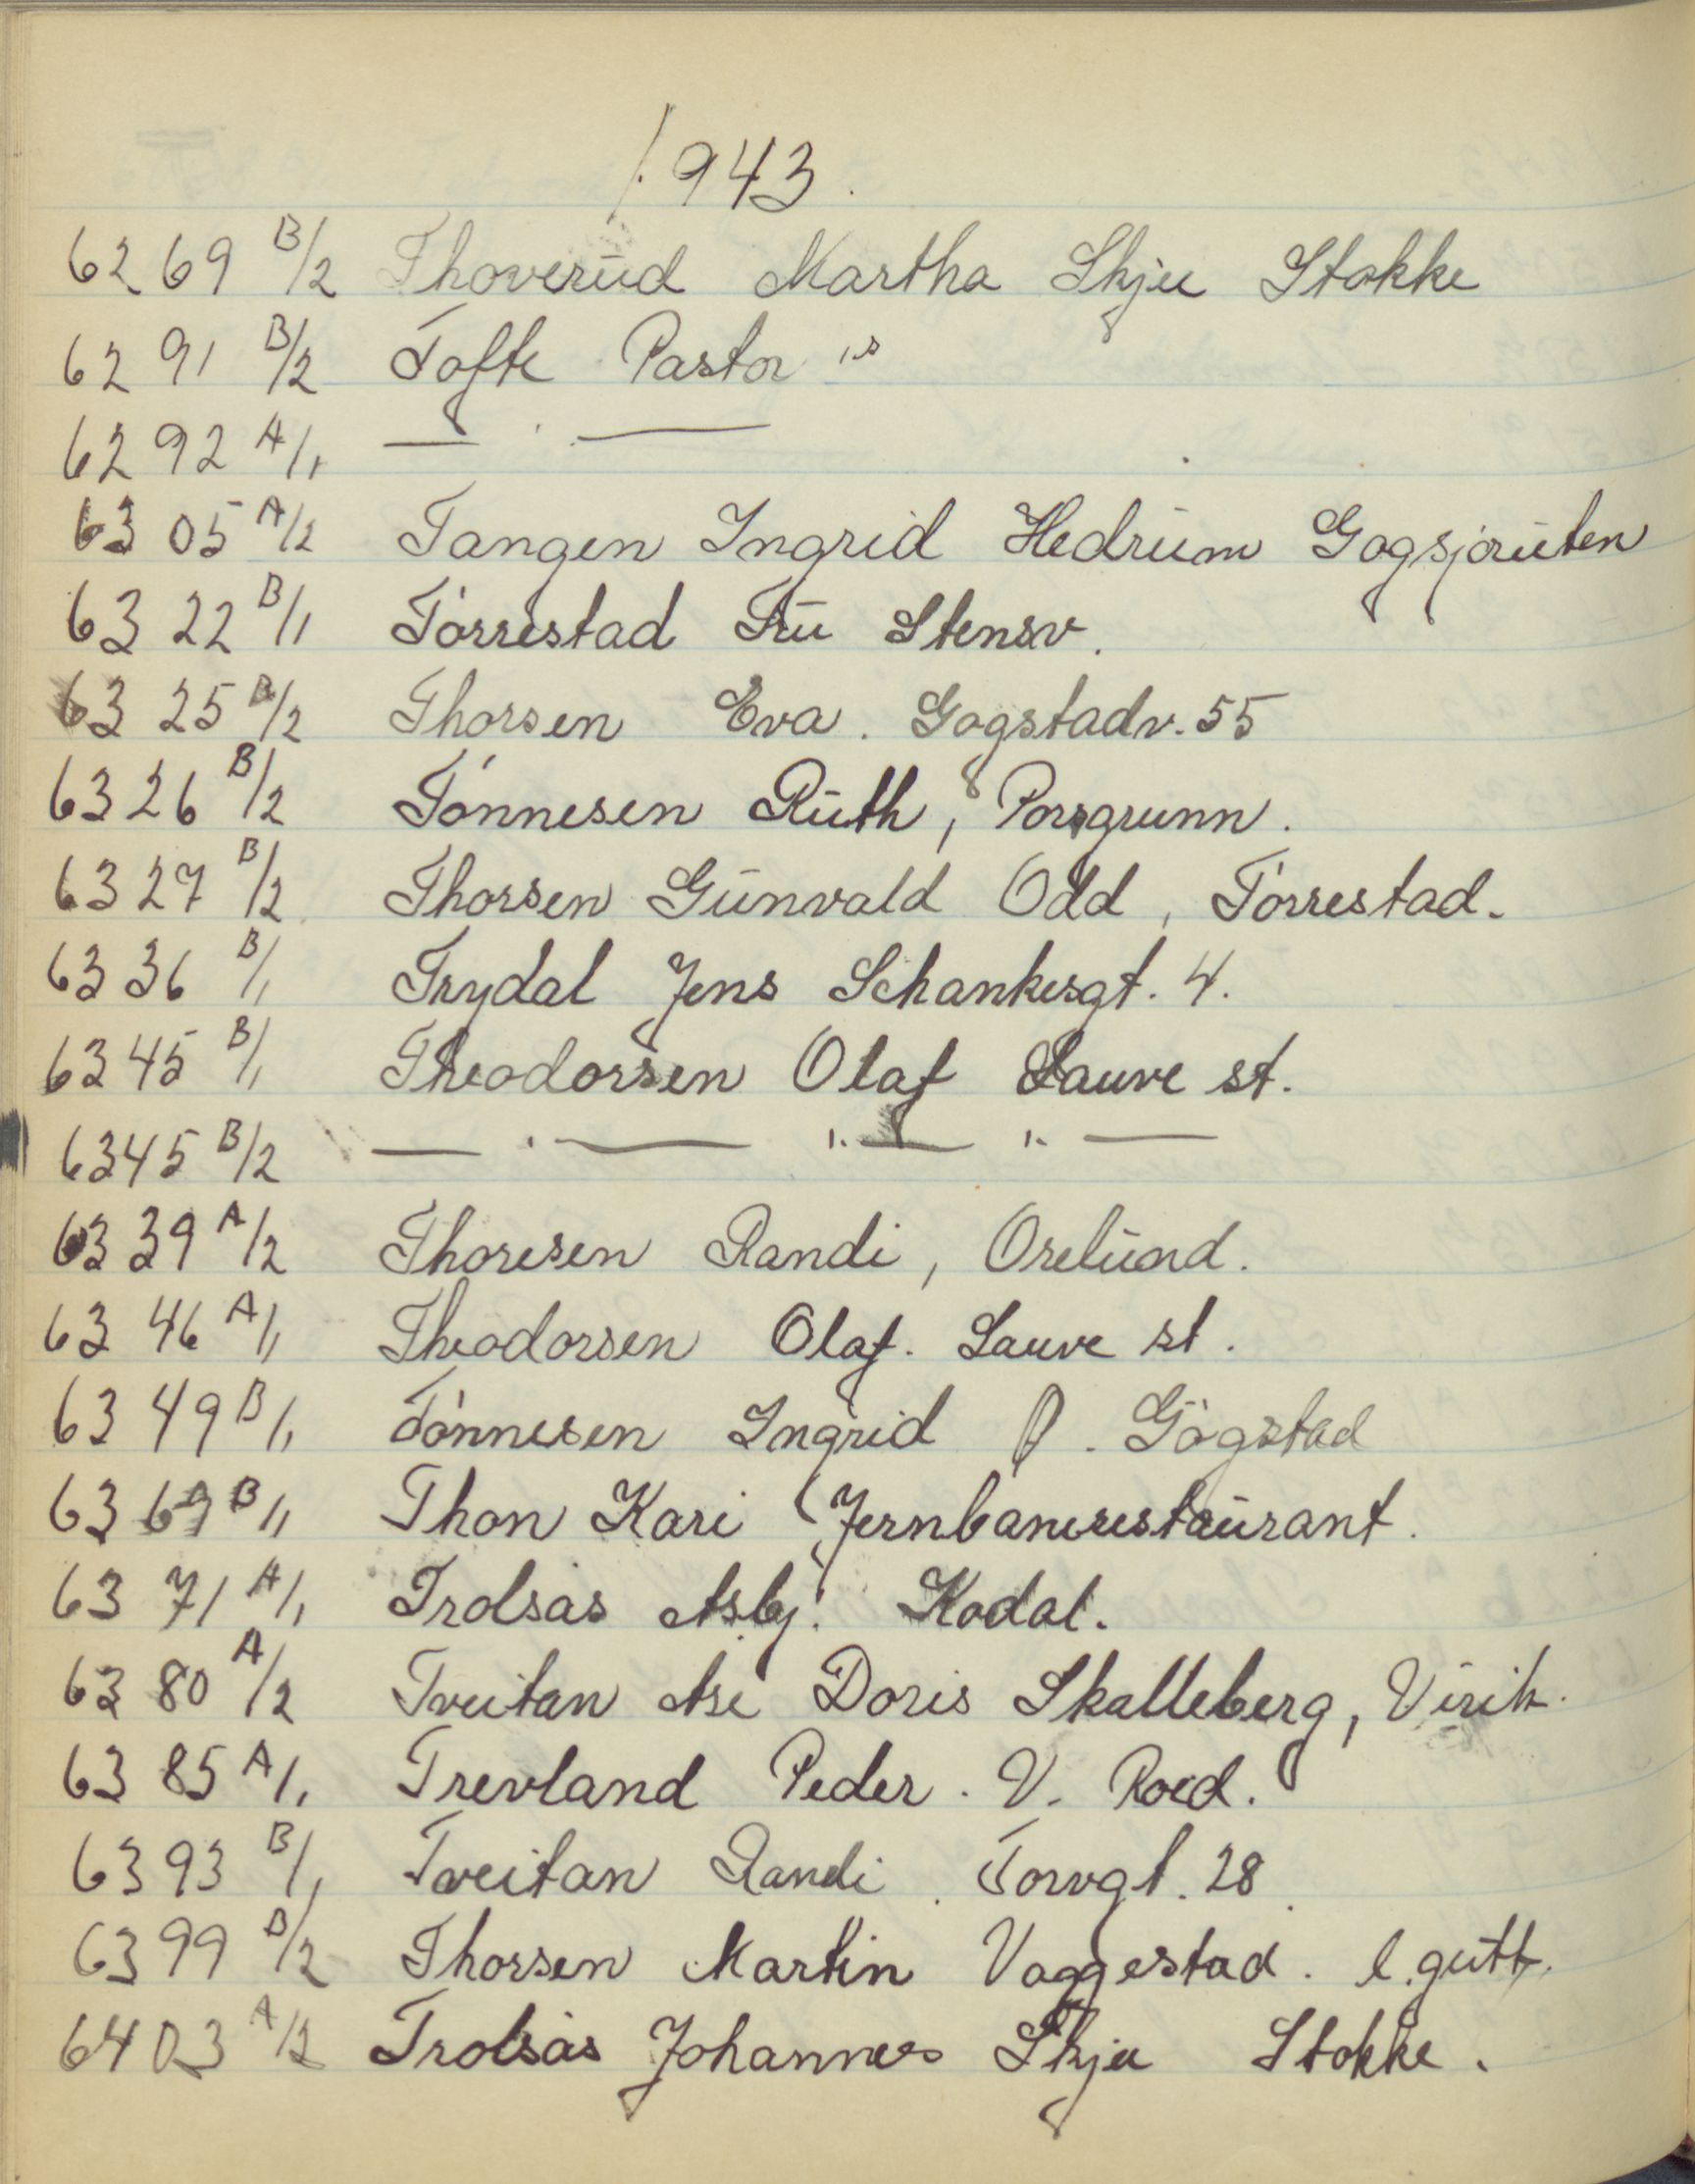 1943.
6269 B/2 Thoverud Martha Skjee Stokke
6291 B/2 Tofte Pastor
6292 A/1 — " —
6305 A/2 Tangen Ingrid Hedrum Gogsjøruten
6322 B/1 Tørrestad Fru Stensv.
6325 B/2 Thorsen Eva. Gogstadv. 55
6326 B/2 Tønnesen Ruth, Porsgrunn.
6327 B/2 Thorsen Gunvald Odd, Tørrestad.
6336 B/1 Trydal Jens Schankesgt. 4.
6345 B/1 Theodorsen Olaf Sauve st.
6345 B/2 — " — " — " —
6339 A/2 Thoresen Randi, Orelund.
6346 A/1 Theodorsen Olaf. Sauve st.
6349 B/1 Tønnesen Ingrid Ø. Gogstad
6369 B/1 Thon Kari Jernbanerestaurant.
6371 A/1 Trolsås Asbj. Kodal.
6380 A/2 Tveitan Åse Doris Skalleberg, Virik.
6385 A/1 Trevland Peder. V. Roed.
6393 B/1 Tveitan Randi. Torvgt. 28.
6399 B/2 Thorsen Martin Vaggestad. l. gutt.
6403 A/2 Trolsås Johannes Skjee Stokke.